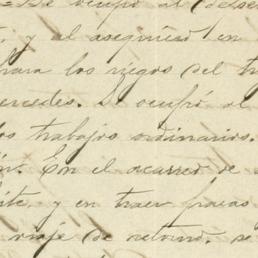 se ocupó al
, y al asegurar en
para los riegos del
ercedes. Se ocupó al
os trabajos ordinarios.
ón. Con el acarreo de
ite, y en traer
viaje de retorno, se